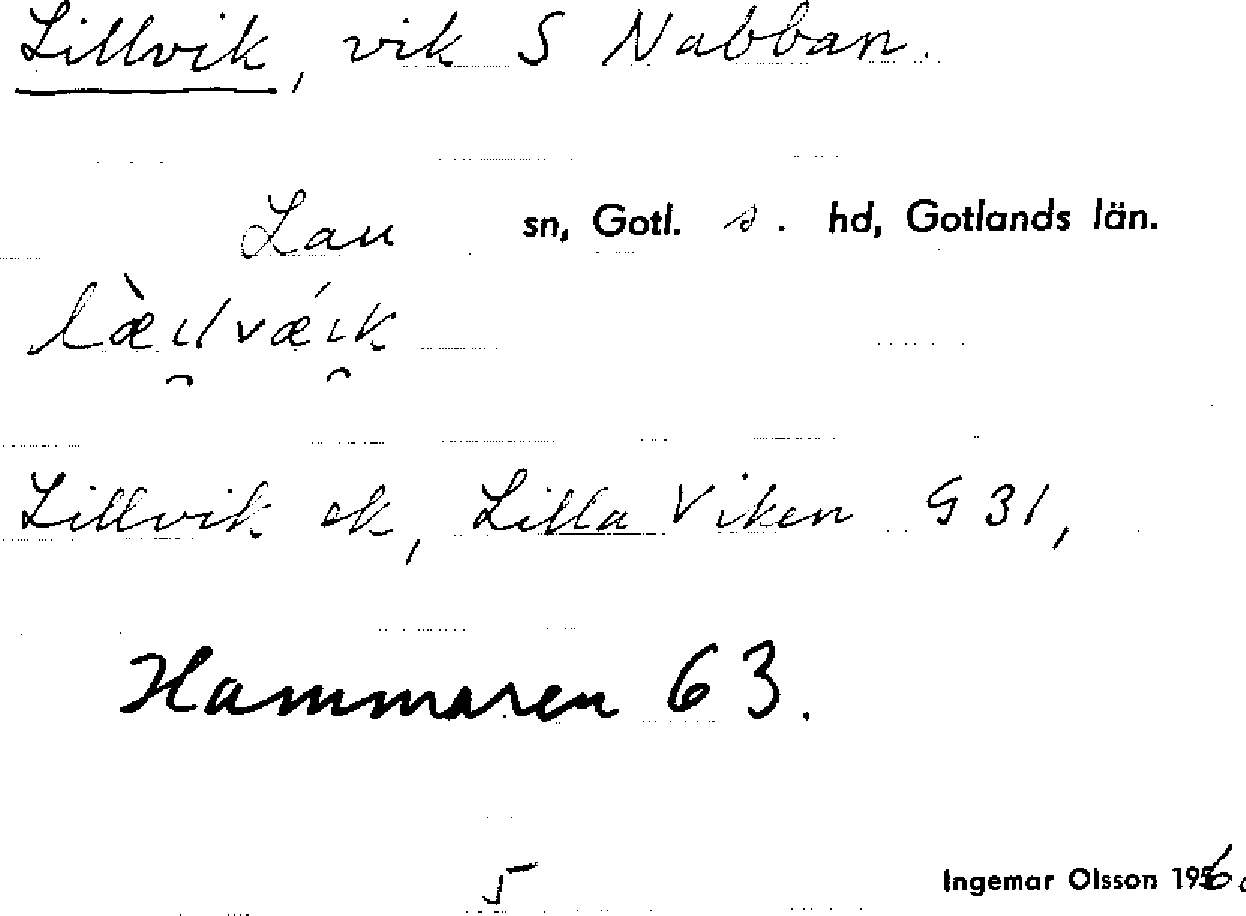 Lillvik, vik S Nabban.
Lau sn, Gotl. s. hd, Gotlands län.
læ̀ı̯lvǽı̯k
Lillvik ek, Lilla Viken G 31,
Hammaren 63.
5
Ingemar Olsson 196